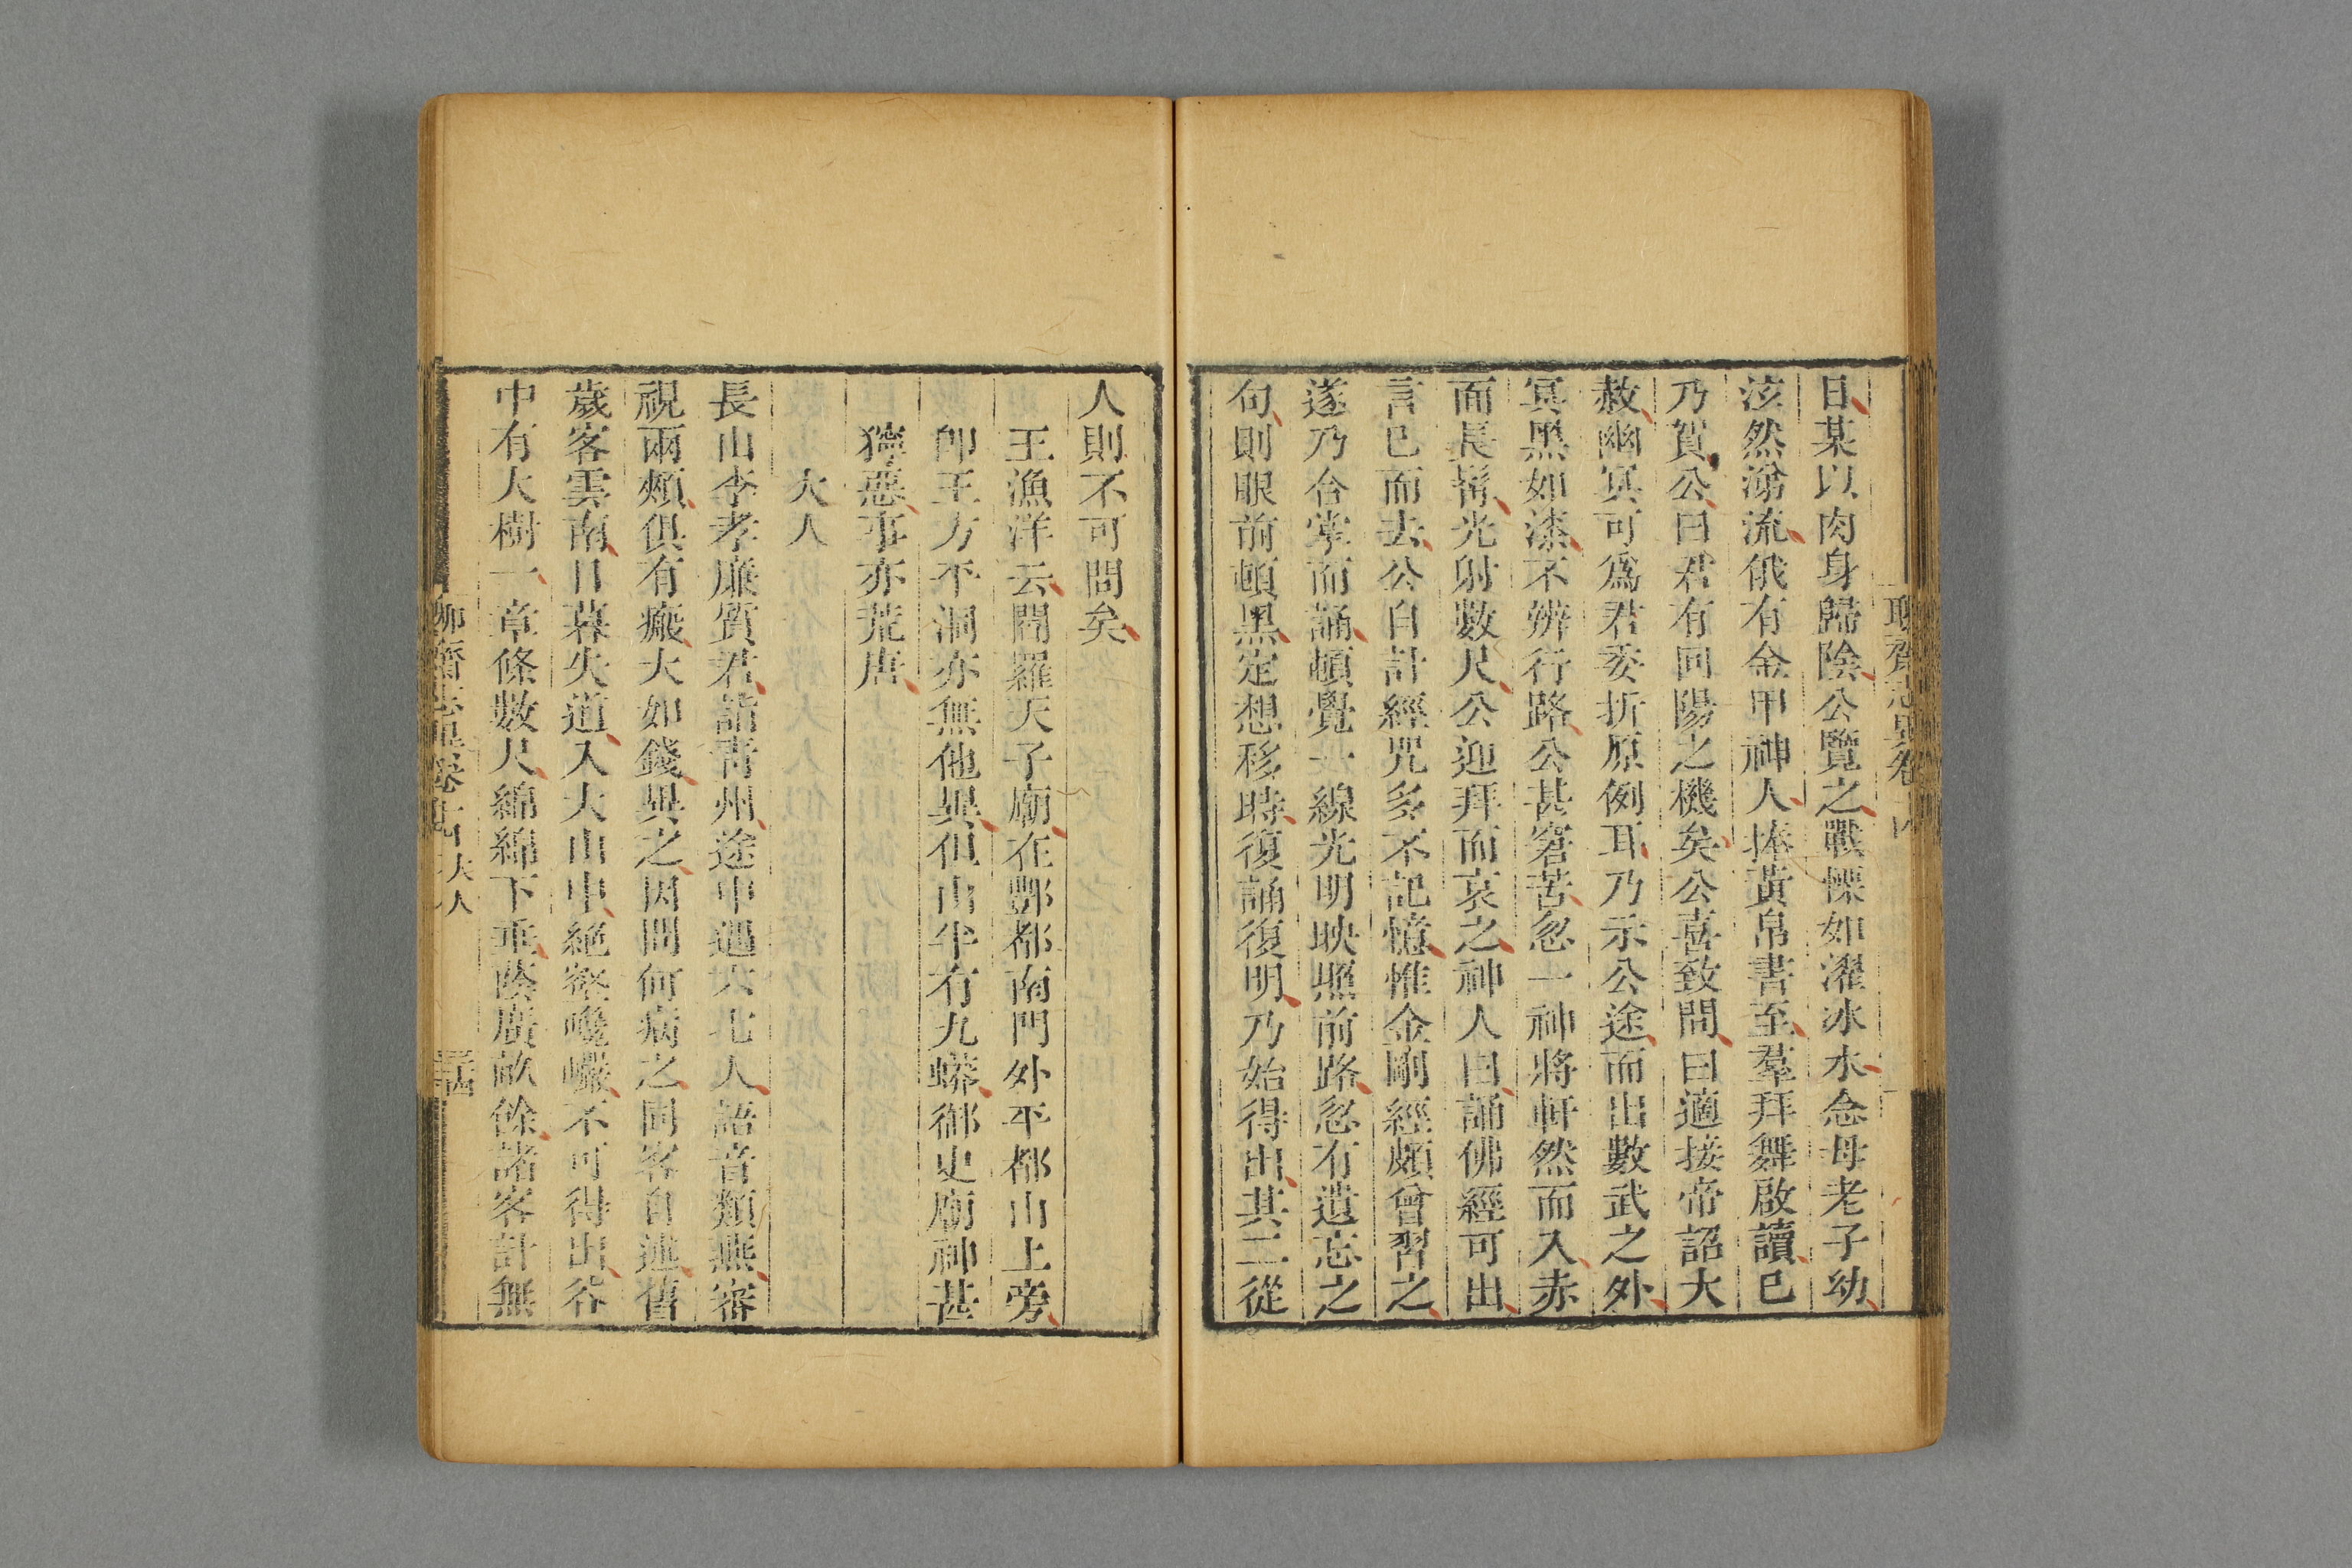 聊齋志異卷十四
日某以肉身歸陰公覽之戰慄如濯冰水念母老子幼
泫然涕流俄有金甲神人捧黃帛書至羣拜舞啟讀已
乃賀公曰君有回陽之機矣公喜致問曰適接帝詔大
赦幽冥可為君委折原例耳乃示公途而出數武之外
冥黑如漆不辨行路公甚窘苦忽一神將軒然而入赤
面長髯光射數尺公迎拜而哀之神人曰誦佛經可出
言已而去公自計經咒多不記憶惟金剛經頗曾習之
遂乃合掌而誦頓覺一線光明映照前路忽有遺忘之
句則眼前頓黑定想移時復誦復明乃始得出其二從
人則不可問矣
王漁洋云閻羅天子廟在酆都南門外平都山上旁
卽王方平洞亦無他異但山半有九蟒御史廟神甚
獰惡事亦荒唐
大人
長山李孝廉質君詣青州途中遇六七人語音類燕審
視兩頰俱有瘢大如錢異之因問何病之同客自述舊
歲客雲南日暮失道入大山中絕壑巉巖不可得出谷
中有大樹一章條數尺綿綿下垂蔭廣畝餘諸客計無
聊齋志異卷十四 大人